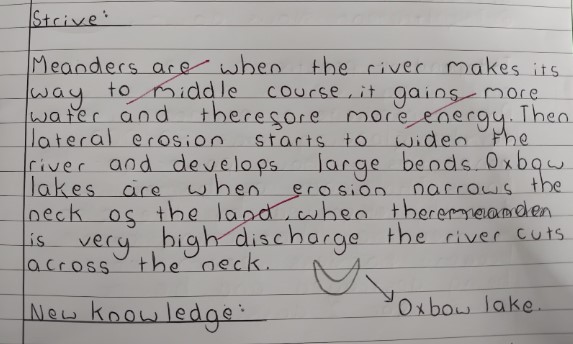 Strive:
Meanders are when the river makes its
way to middle course, it gains more
water and theresore more energy. Then
lateral erosion starts to widen the
river and develops large bends. Oxbow
lakes are when erosion narrows the
neck os the land, when there
is very high discharge the river cuts
across the neck.
Oxbow lake.
New knowledge: